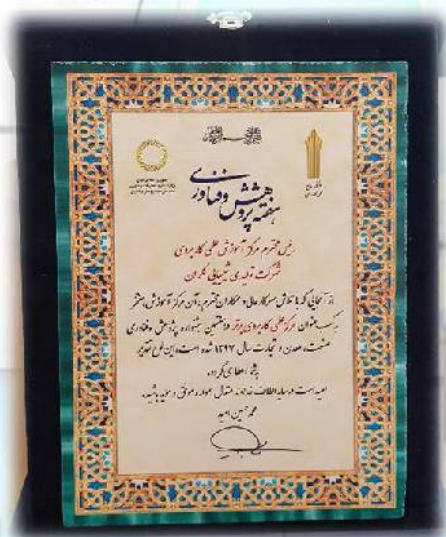 هفته پژوهش و فناوری
رئیس محترم مرکز آموزش علمی کاربردی
شرکت تولیدی شیمیایی کلران
از آنجایی که با تلاش سرکار عالی و همکاران محترم، آن مرکز آموزش، مفتخر
به کسب عنوان مرکز علمی کاربردی برتر در هشتمین جشنواره پژوهش و فناوری
صنعت، معدن و تجارت سال ۱۳۹۷ شده است، این لوح تقدیر
به شما اعطا می گردد.
امید است در سایه الطاف خداوند متعال همواره موفق و موید باشید.
محمد حسین امید